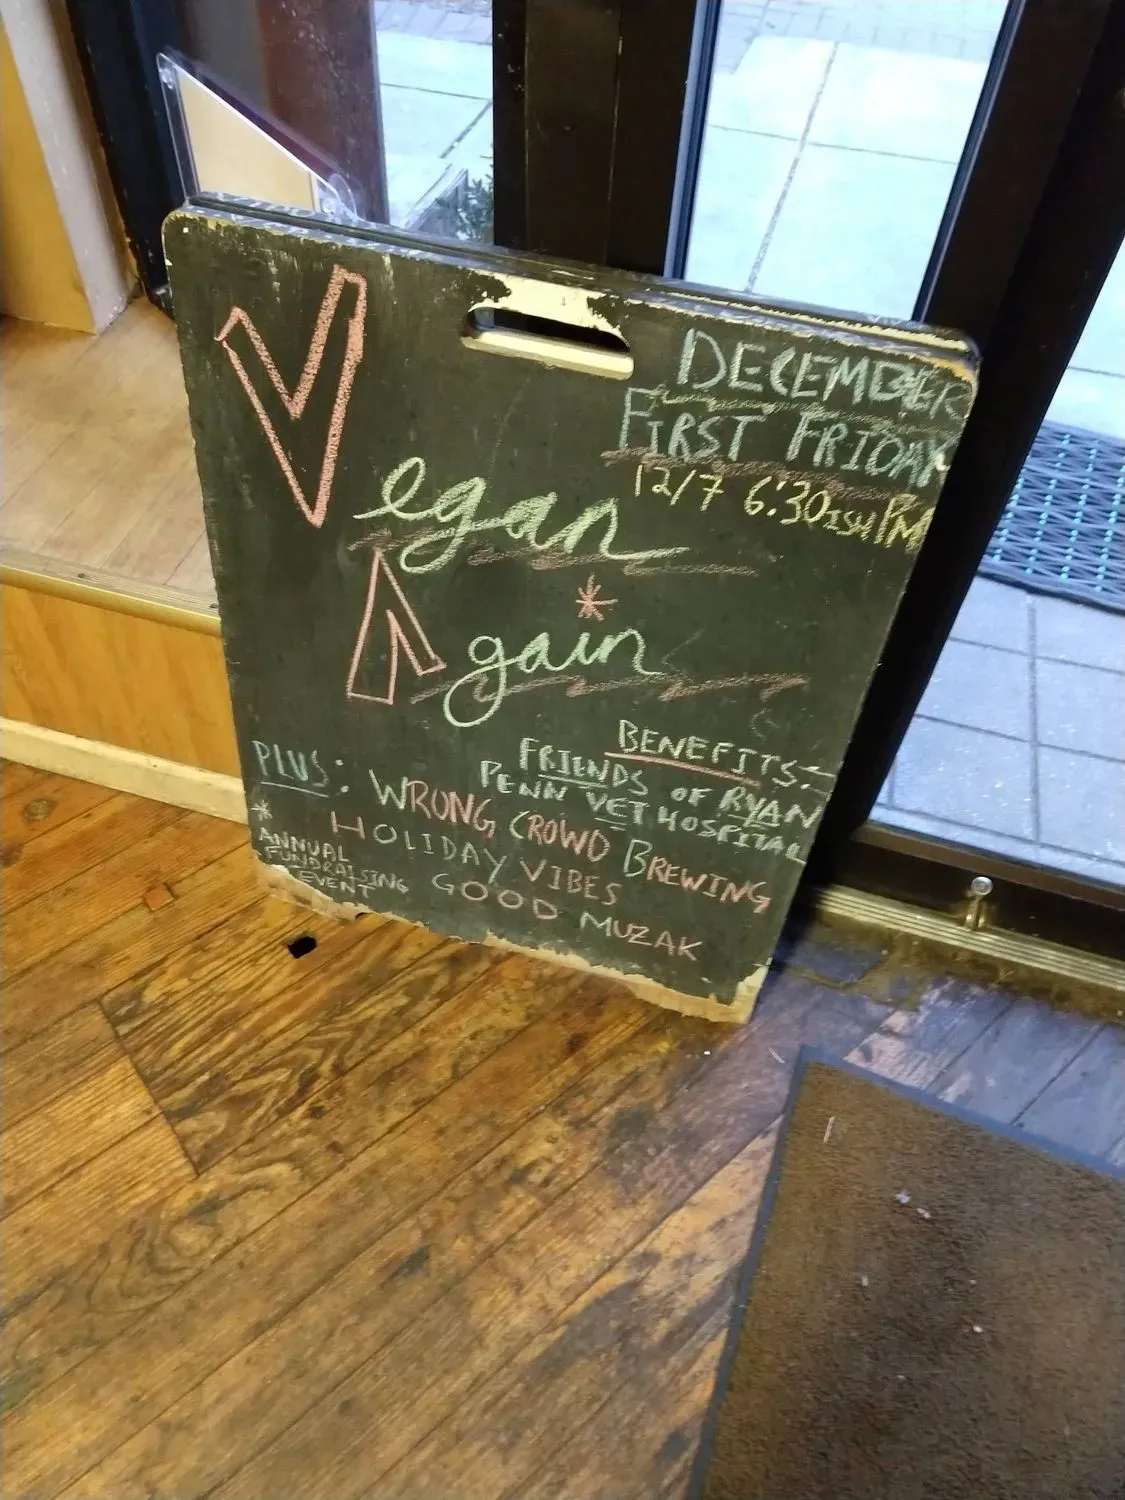 DECEMBER
FIRST FRIDAY
12/7 6:30ISH PM
Vegan
Again*
BENEFITS:
FRIENDS OF RYAN
PENN VET HOSPITAL
PLUS: WRONG CROWD BREWING
HOLIDAY VIBES
GOOD MUZAK
*
ANNUAL
FUNDRAISING
EVENT